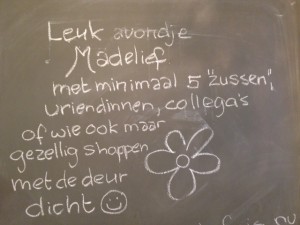 Leuk avondje
Madelief
met minimaal 5 "zussen",
vriendinnen, collega's
of wie ook maar
gezellig shoppen
met de deur
dicht